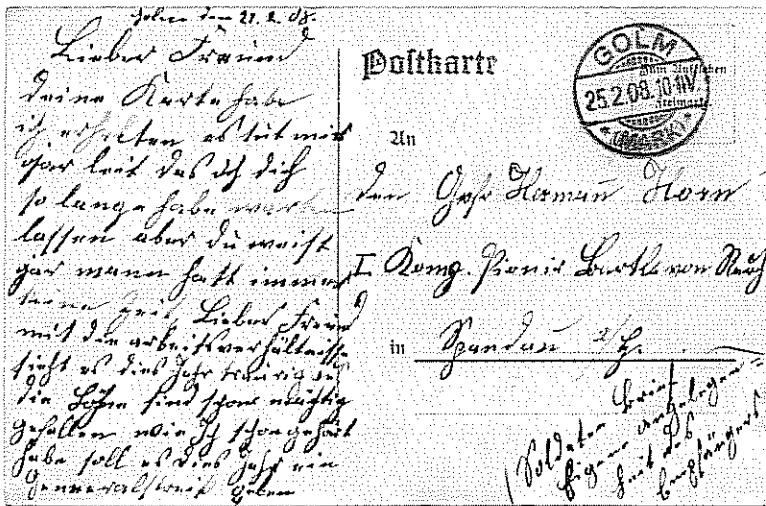 Golm den 21.2.08.
Lieber Freund
deine Karte habe
ich erhalten es tut mir
gar leit das ich dich
so lange habe warten
lassen aber du weist
gar mann hatt immer
keine Zeit, Lieber Freund
mit die arbeitsverhältnisse
sieht es dies Jahr traurig aus
die Löhne sind schon mächtig
gefallen wie ich schon gehört
habe soll es dies Jahr ein
Generalstreik geben
Postkarte
GOLM
25.2.08.10-11V
*(MARK)*
An
den Gefr Herman Horn
I Komp. Pionir Bartl. von Rauch
in Spandau a/H.
Soldaten Brief
Eigene angelegen=
heit des
Empfängers